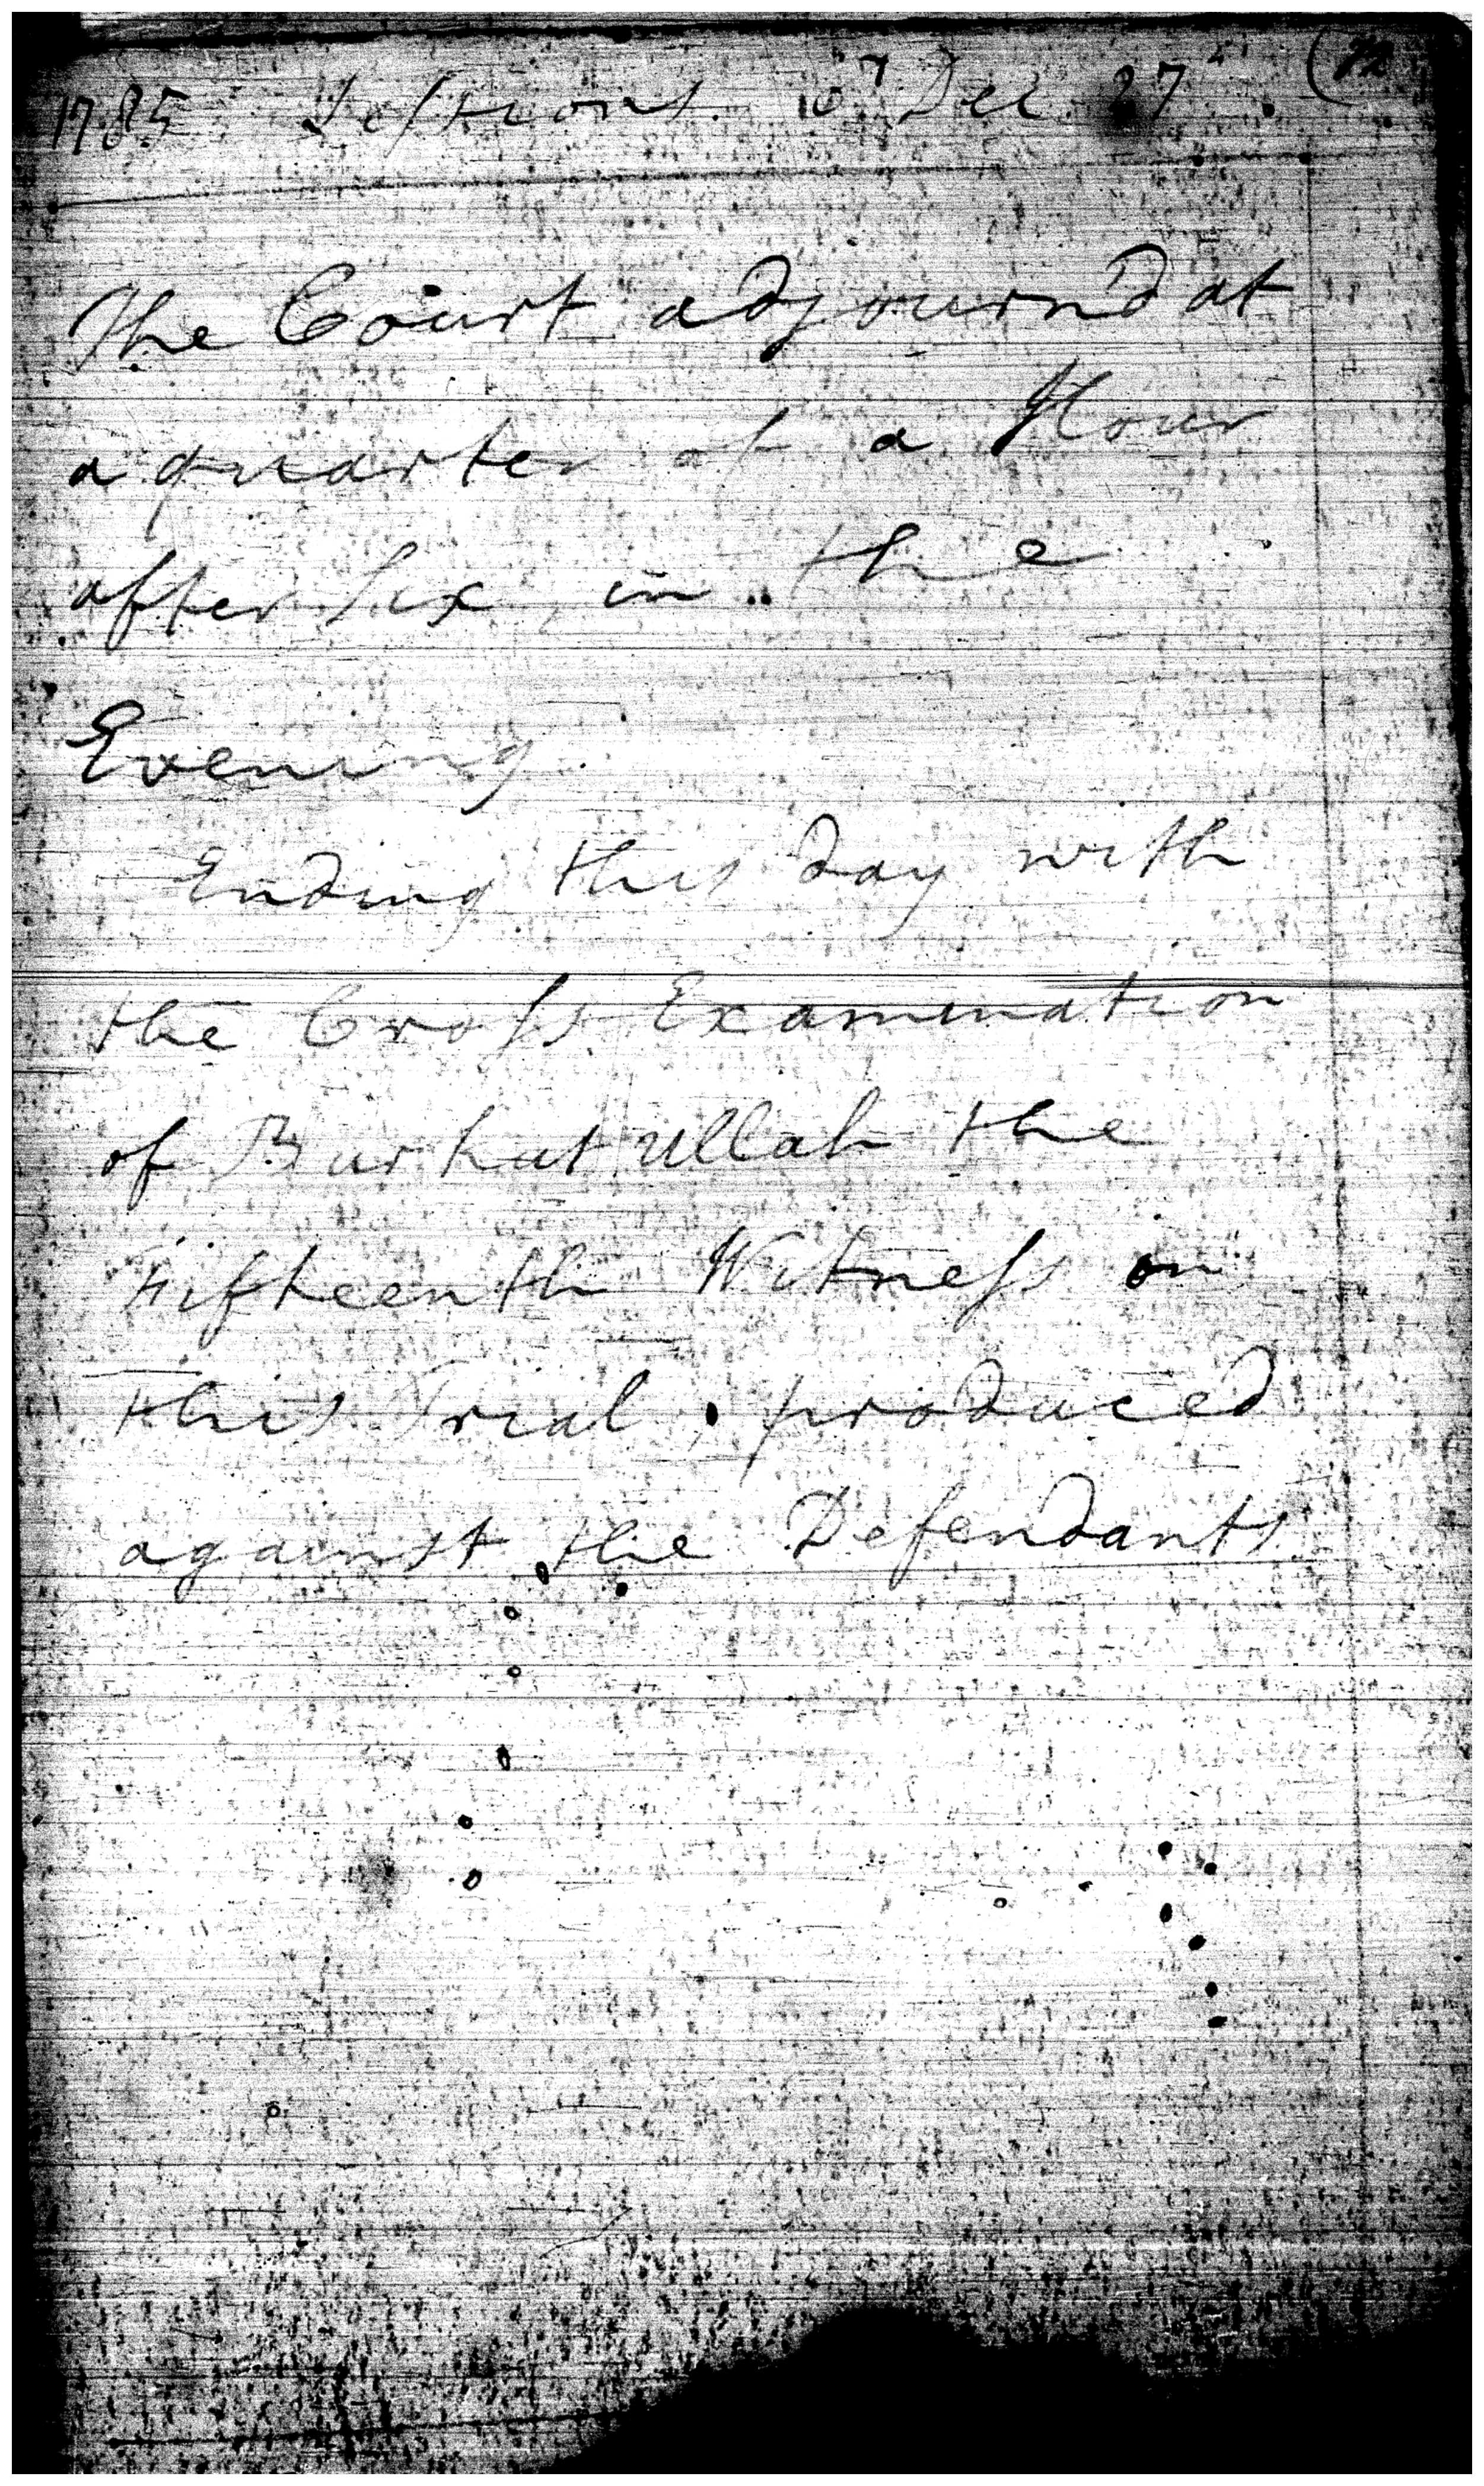 1785 Sessions Dec 27
The Court adjournd at
a quarter of a Hour
after Six in the
Evening
Ending this day with
the Cross Examination
of Burkut Ullah the
Fifteenth Witness on
this Trial produced
against the Defendants